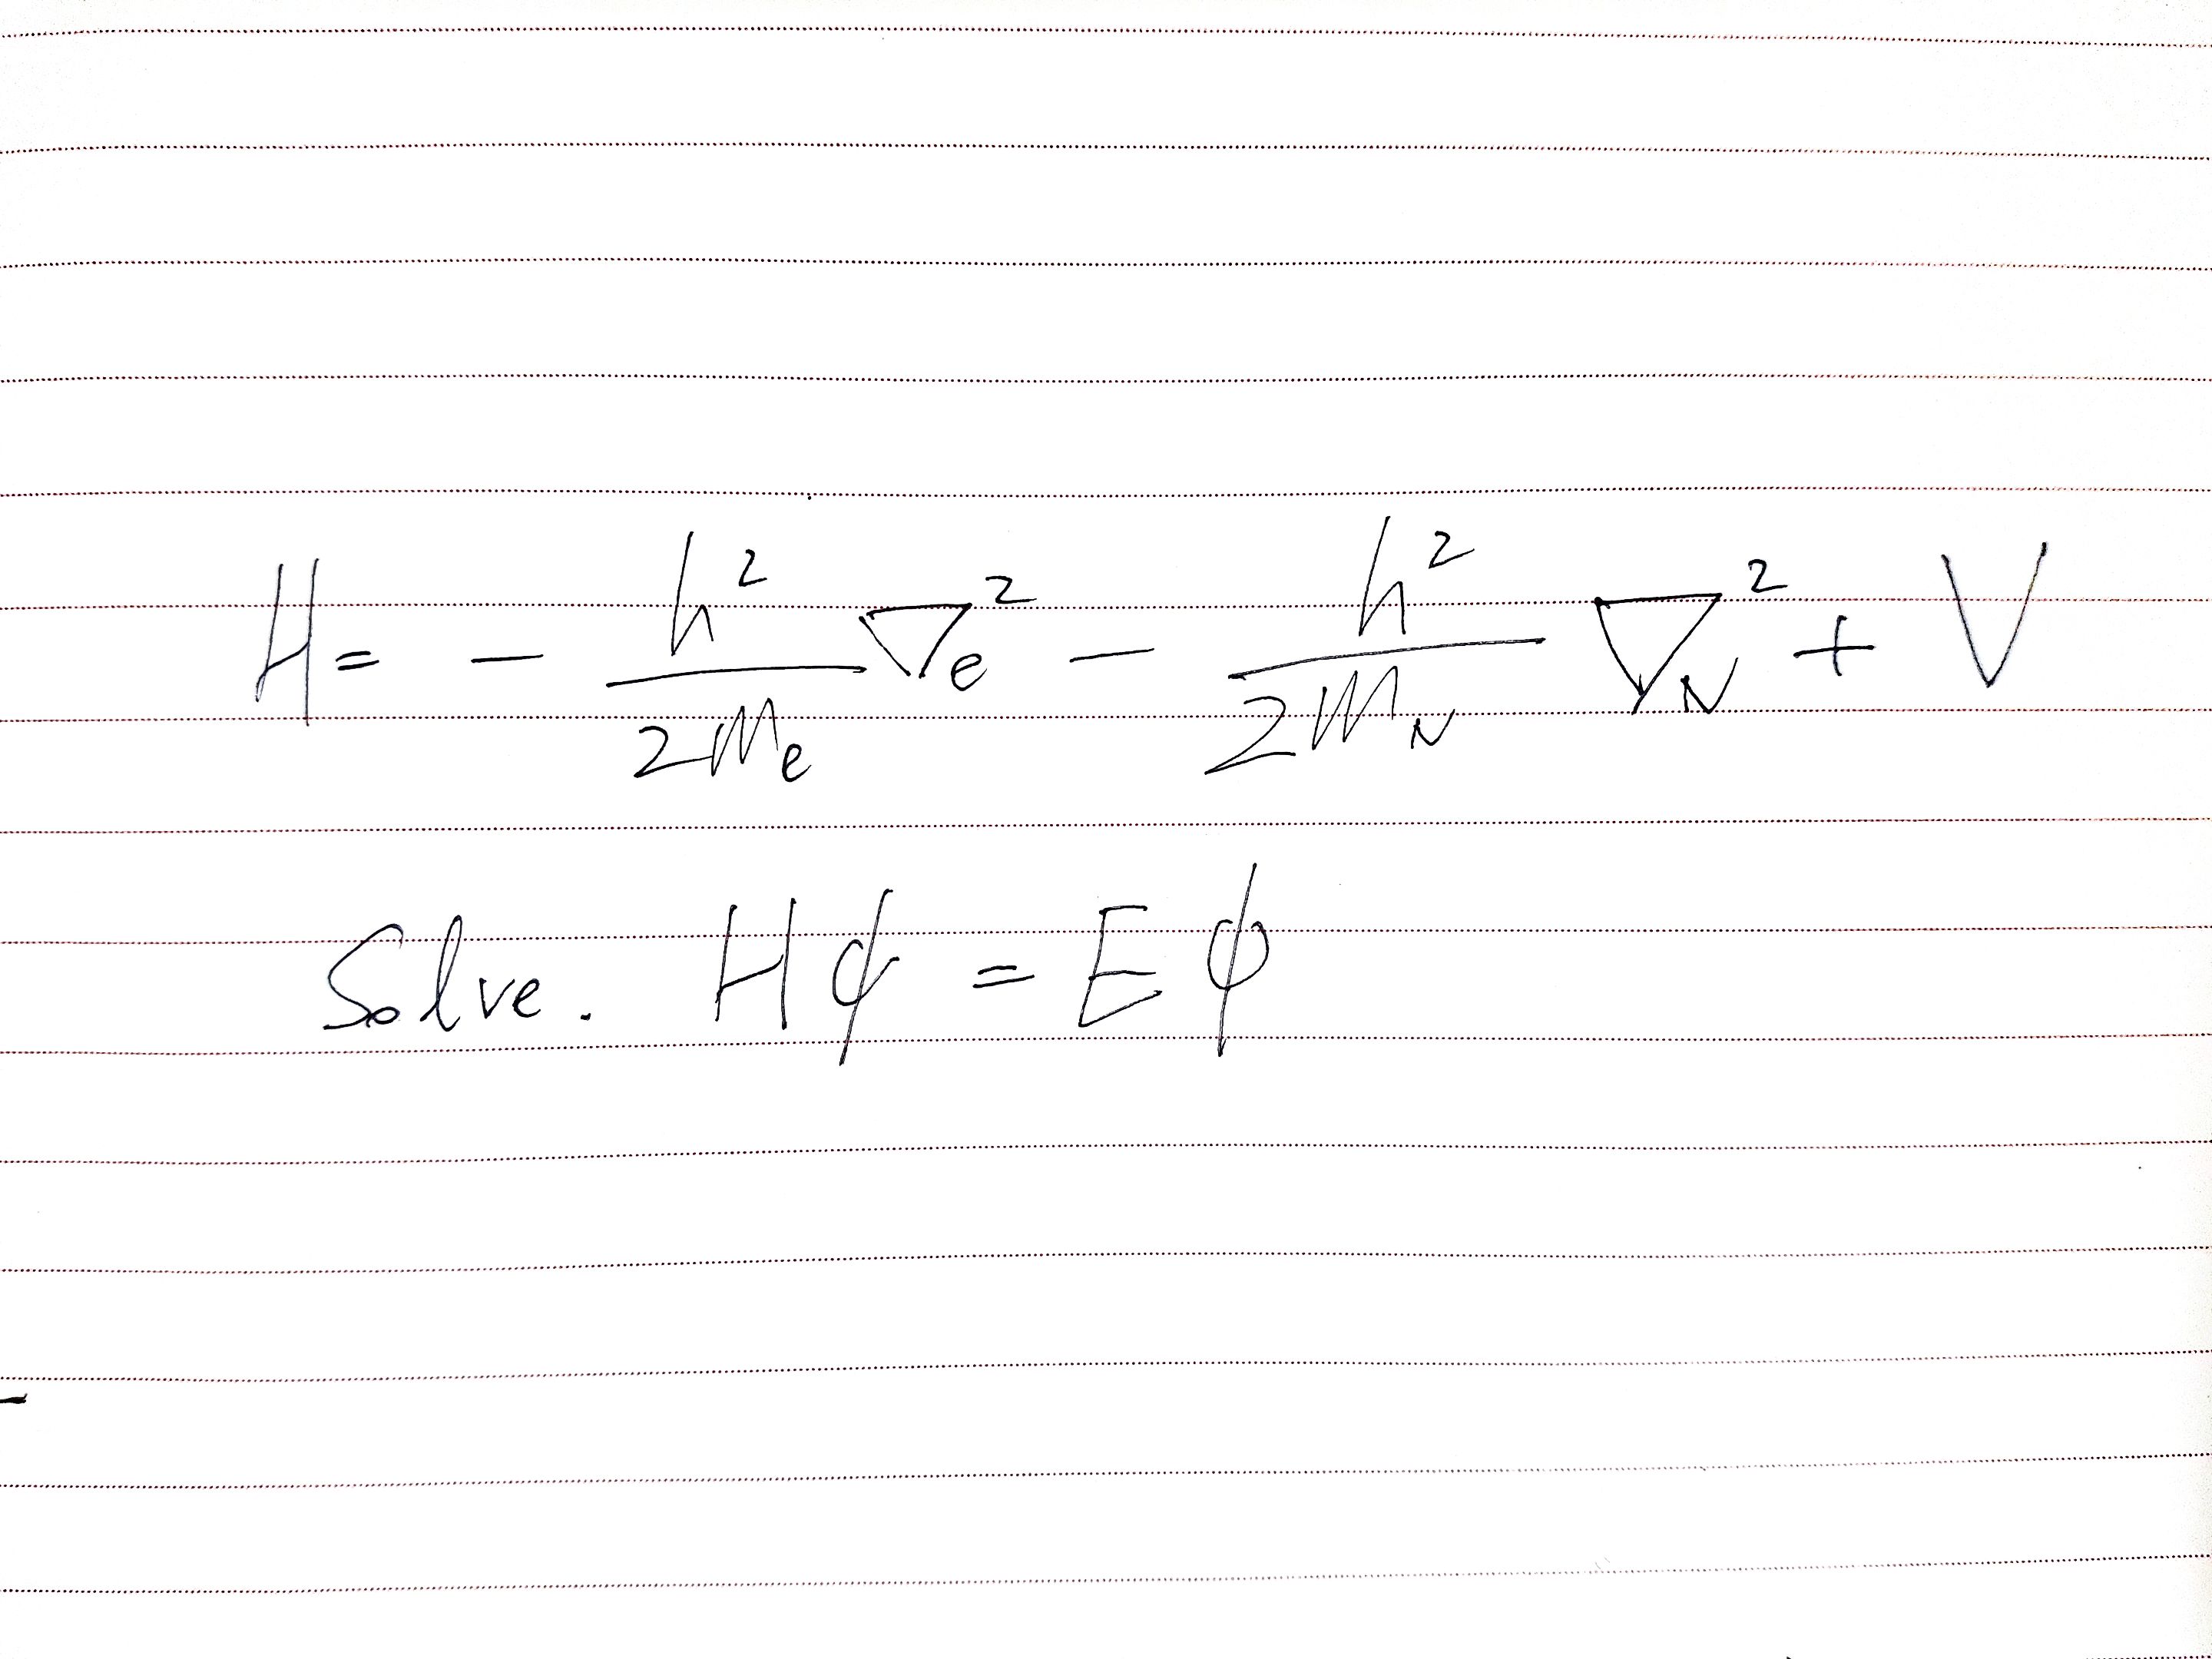 H = - h²/2me ∇e² - h²/2mN ∇N² + V
Solve. Hϕ = Eϕ